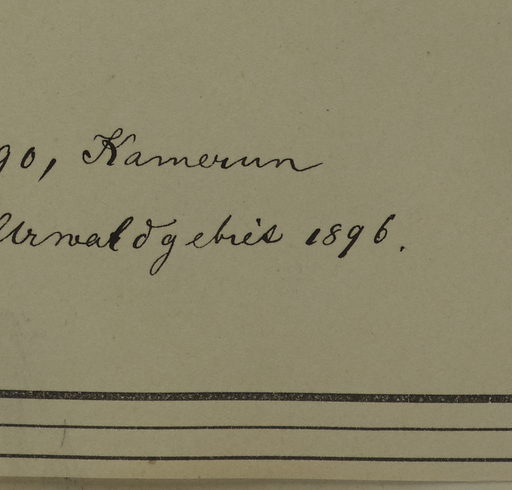 go, Kamerun
Urwaldgebiet 1896.